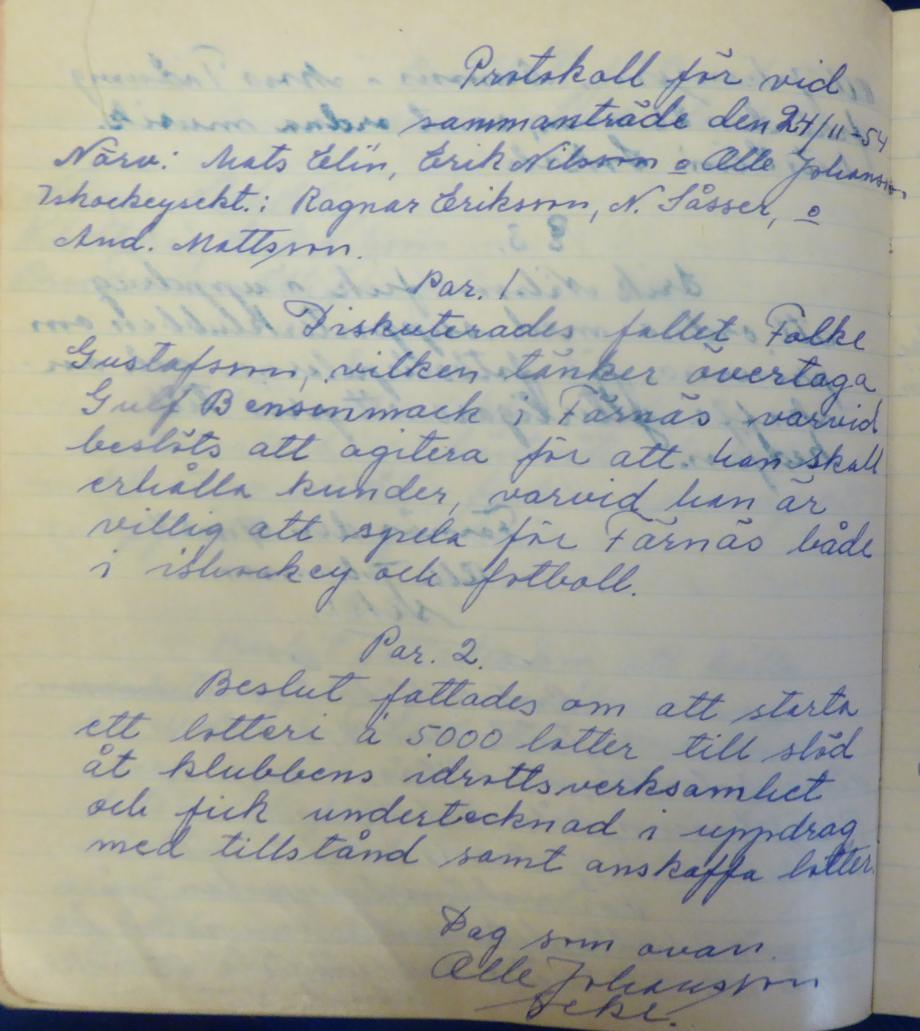 Protokoll för vid
sammanträde den 24/11-54
Närv: Mats Elin, Erik Nilsson o Olle Johansson
Ishockeysekt.: Ragnar Eriksson, N. Såsser, o
And. Mattsson.
Par. 1
Diskuterades fallet Folke
Gustafsson, vilken tänker övertaga
Gulf Bensinmack i Färnäs varvid
beslöts att agitera för att han skall
erhålla kunder, varvid han är
villig att spela för Färnäs både
i ishockey och fotboll.
Par. 2.
Beslut fattades om att starta
ett lotteri à 5000 lotter till stöd
åt klubbens idrottsverksamhet
och fick undertecknad i uppdrag
med tillstånd samt anskaffa lotter.
Dag som ovan
Olle Johansson
Sekr.